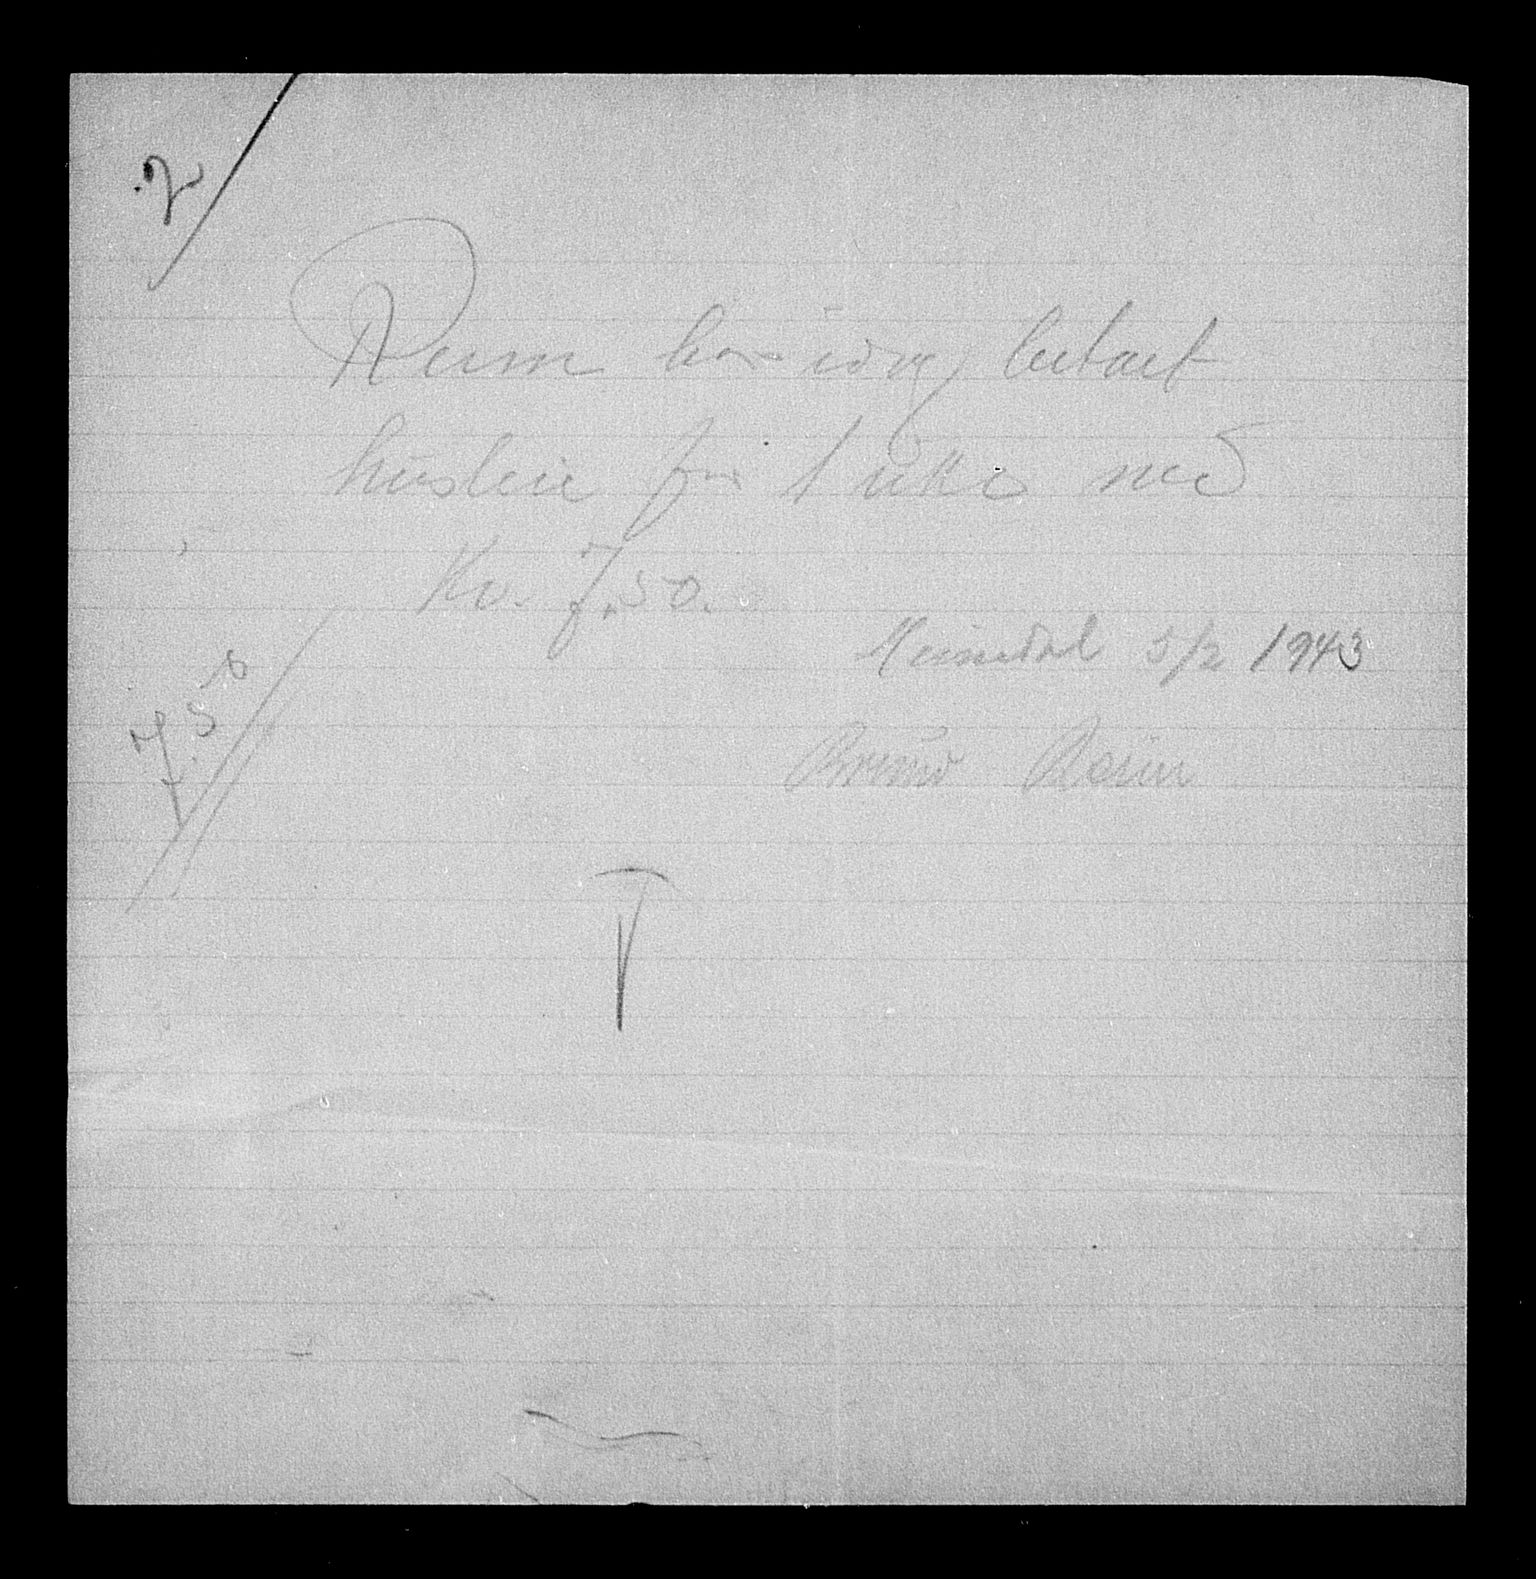 2
Reim har idag betalt
husleie for 1 uke med
Kr. 7,50.
7.50
Heimdal 5/2 1943
Reim